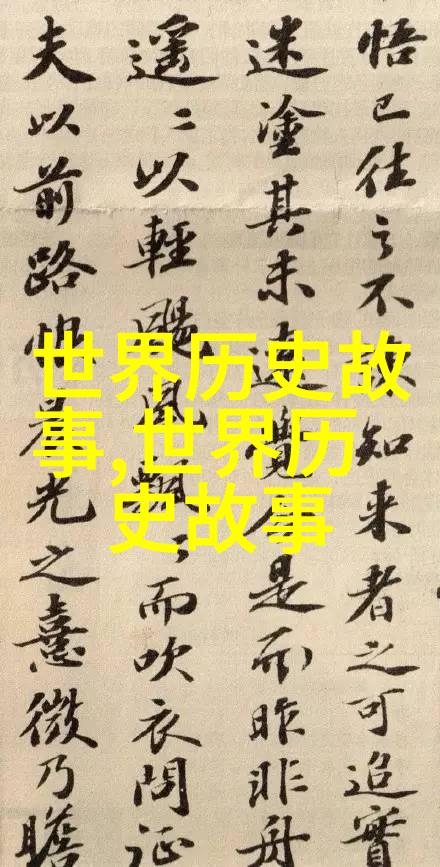 世界历史故
事,世界历
史故事
悟已往之不知来者之可追實
迷塗其未遠覺今是而昨非舟
遥〻以輕颺風飄〻而吹衣問征
夫以前路恨晨光之熹微乃瞻